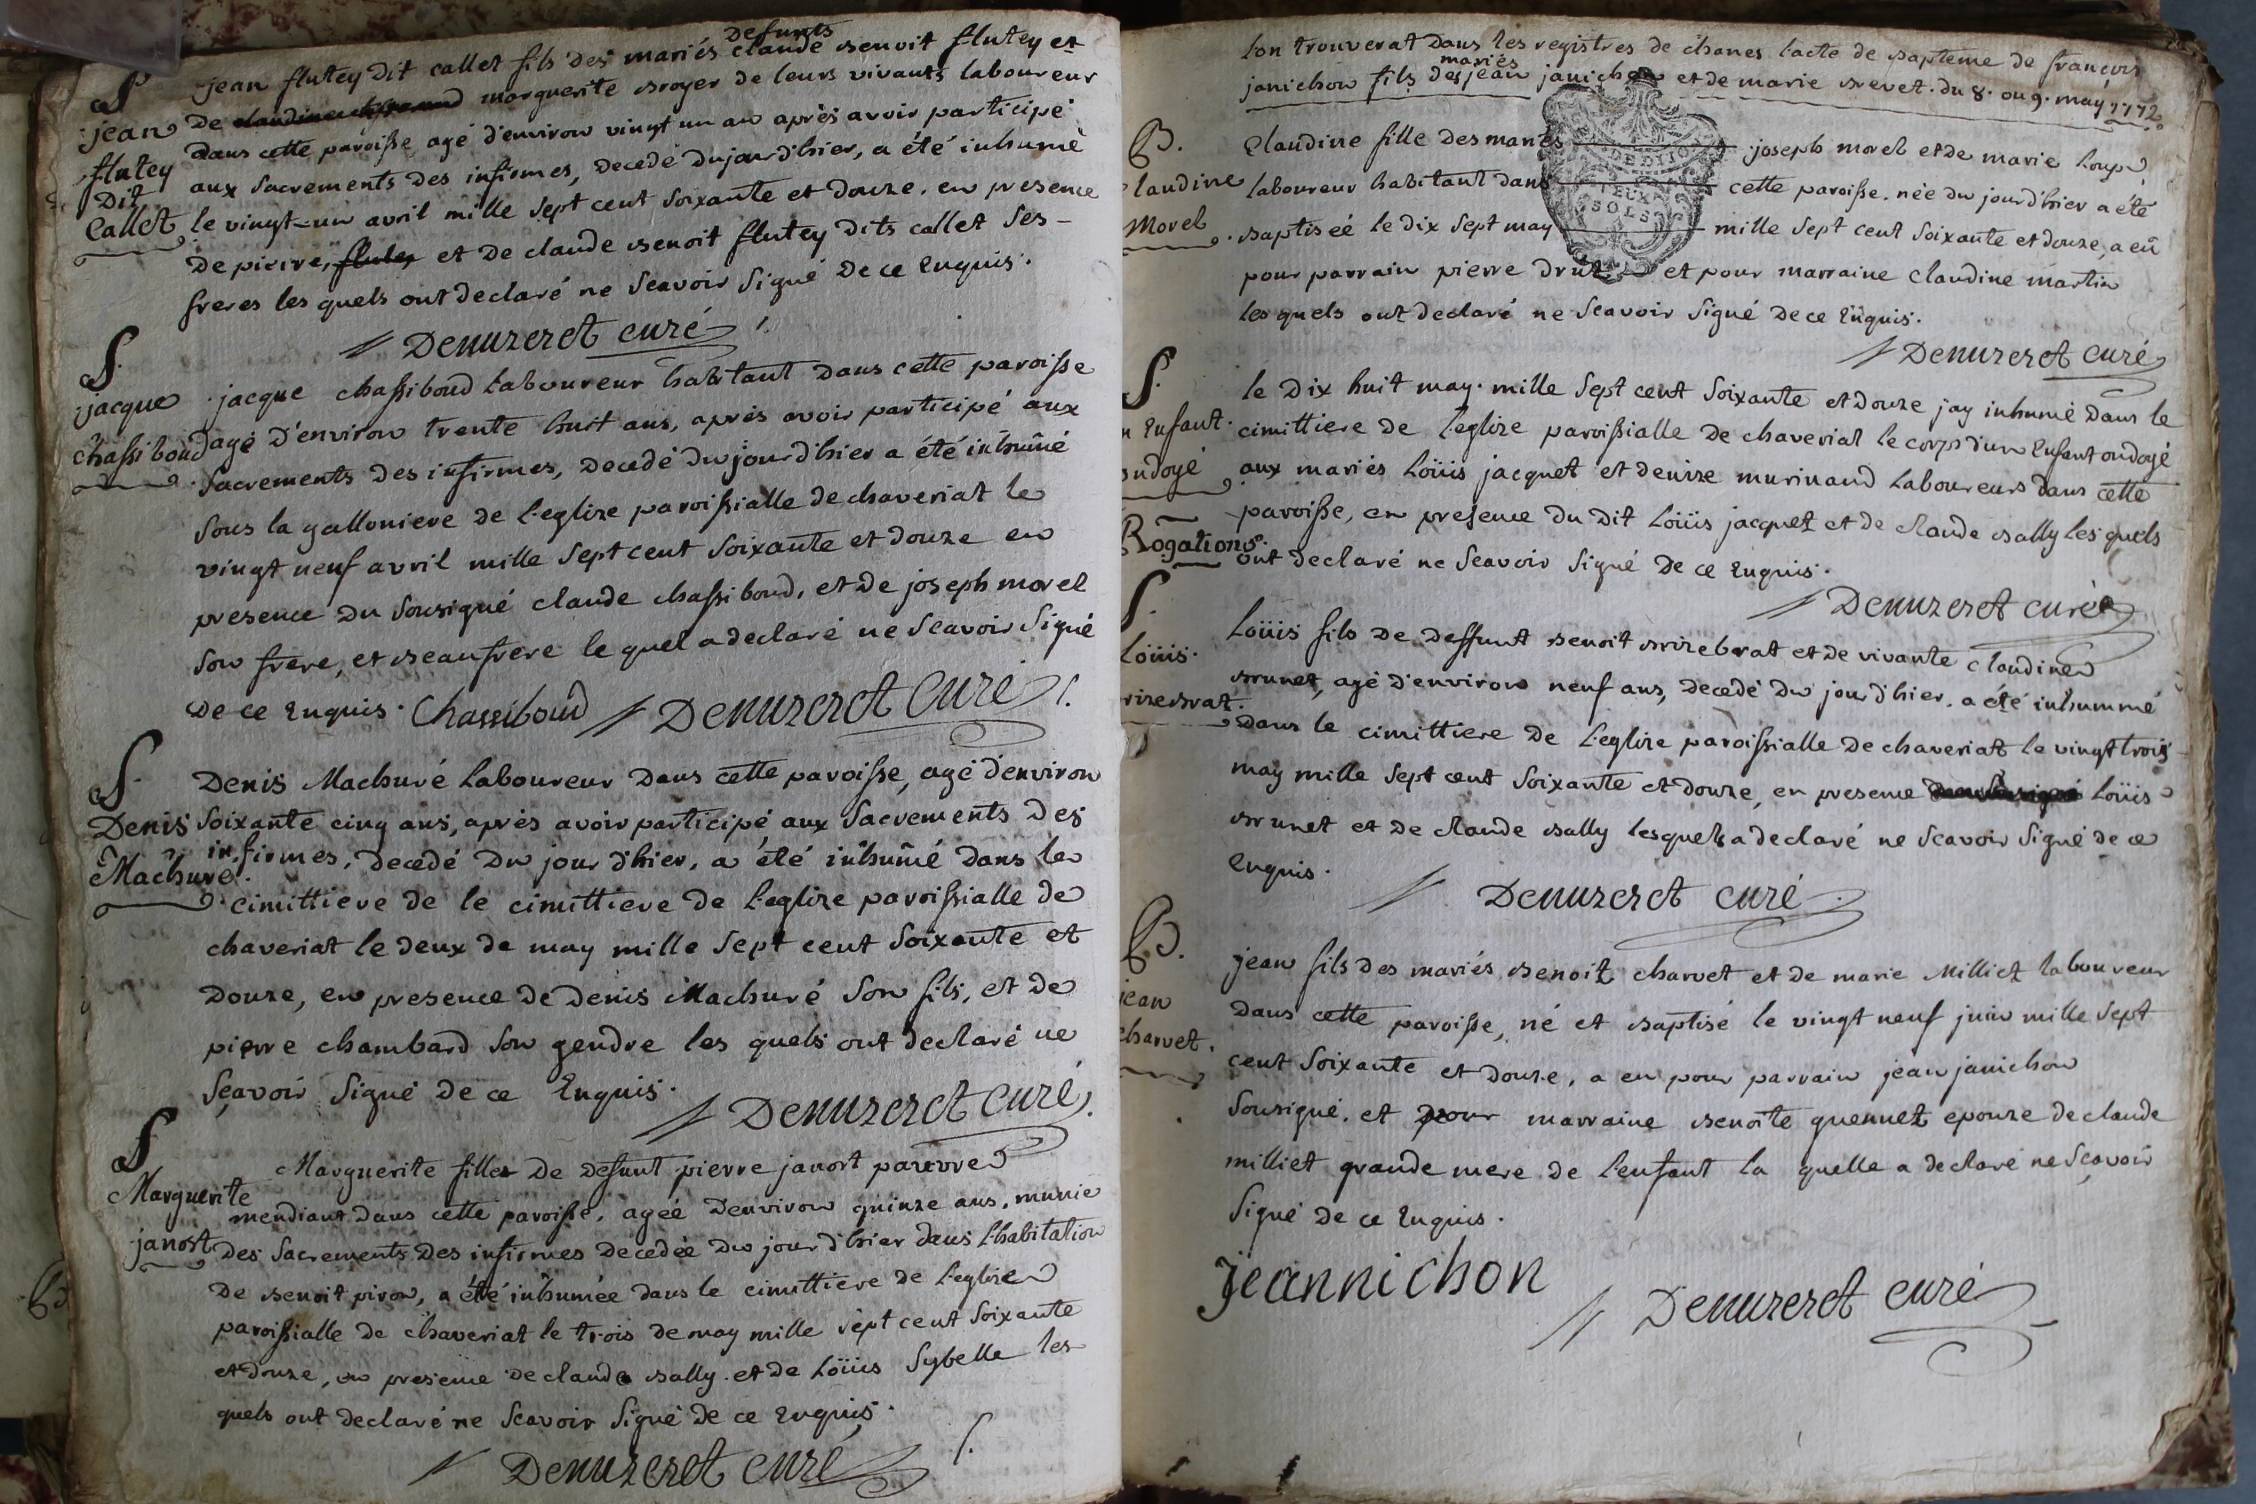 S
jean
flutey
Dit
Callet
Defunts
jean flutey Dit callet fils des mariés claude benoit flutey et
De marguerite broyer de leurs vivants laboureur
Dans cette paroisse agé d'environ vingt un an après avoir participé
aux Sacrements des infirmes, Decedé du jour d'hier, a été inhumé
le vingt-un avril mille Sept cent Soixante et douze. en presence
De pierre, flutey et de claude benoit flutey dits callet Ses -
freres les quels ont declaré ne Scavoir Signé De ce Enquis.
Denuzeret curé
S.
jacque
chassiboud
jacque chassiboud Laboureur habitant Dans cette paroisse
agé D'environ trente huit ans, après avoir participé aux
Sacrements des infirmes, Decedé du jour d'hier a été inhumé
Sous la galloniere de L'eglize paroissialle de chaveriat le
vingt neuf avril mille Sept cent Soixante et douze en
presence Du Sousigné claude chassiboud, et de joseph morel
Son frere, et beaufrere le quel a declaré ne Scavoir Signé
De ce Enquis. Chassiboud Denuzeret Curé
S.
Denis
Machuré.
Denis Machuré Laboureur Dans cette paroisse, agé d'environ
Soixante cinq ans, après avoir participé aux Sacrements Des
infirmes, decedé Du jour d'hier, a été inhumé dans le
cimittiere de le cimittiere de L'eglize paroissialle de
chaveriat le deux de may mille Sept cent Soixante et
Douze, en presence de Denis Machuré Son fils, et de
pierre chambard Son gendre les quels ont declaré ne
Sçavoir Signé de ce Enquis.
Denuzeret curé
S
Marguerite
janort
Marguerite fille De Defunt pierre janort pauvre
mendiant dans cette paroisse, agéé Denviron quinze ans, munie
Des Sacrements Des infirmes Decedée Du jour d'hier dans L'habitation
De benoit piron, a été inhumée dans le cimittiere de L'eglize
paroissialle de chaveriat le trois de may mille sept cent Soixante
et douze, en presence de claude bally et de Loüis Sybelle les
quels ont declaré ne Scavoir Signé de ce Enquis.
Denuzeret curé
lon trouverat Dans les registres de chanes lacte de bapteme de françois
mariés
janichon fils des jean janichon et de marie brevet. du 8. ou 9. may 1772.
B.
laudine
Morel
Claudine fille des mariés joseph morel et de marie Loup
laboureur habitant dans cette paroisse. née du jour d'hier a été
baptiseé le dix Sept may mille Sept cent Soixante et douze, a eu
pour parrain pierre drut et pour marraine claudine martin
les quels ont declaré ne Scavoir Signé De ce Enquis.
DE DIJON
DEUX
SOLS
Denuzeret curé
S.
n Enfant.
ondoyé
le Dix huit may. mille Sept cent Soixante et douze jay inhumé Dans le
cimittiere de L'eglize paroissialle de chaveriat le corps d'un Enfant ondoyé
aux mariés Loüis jacquet et denize murinand Laboureurs dans cette
paroisse, en presence du Dit Loüis jacquet et de claude bally les quels
ont declaré ne Scavoir Signé De ce Enquis.
Rogations.
Denuzeret curé
S.
Loüis.
rizebrat.
Loüis fils De Deffunt benoit brizebrat et de vivante claudine
brunet, agé d'environ neuf ans, Decedé Du jour d'hier, a été inhummé
Dans le cimittiere De L'eglize paroissialle De chaveriat le vingt trois
may mille Sept cent Soixante et douze, en presence Loüis
brunet et de claude bally lesquels a declaré ne Scavoir Signé de ce
Enquis.
Denuzeret curé
B.
jean
charvet.
jean fils des mariés benoit charvet et de marie Milliet laboureur
Dans cette paroisse, né et baptisé le vingt neuf juin mille Sept
cent Soixante et douze, a eu pour parrain jean janichon
Sousigné, et pour marraine benoite guennet epouze de claude
milliet grande mere de l'enfant la quelle a declaré ne Sçavoir
Signé De ce Enquis.
jeannichon
Denuzeret curé